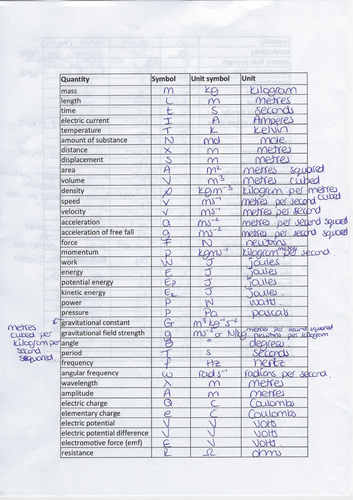 Quantity Symbol Unit symbol Unit
mass m kg kilogram
length L m metres
time t s seconds
electric current I A Amperes
temperature T K kelvin
amount of substance N mol mole
distance x m metres
displacement s m metres
area A m² metres squared
volume V m³ metres cubed
density ρ kgm⁻³ kilogram per metres cubed
speed v ms⁻¹ metres per second
velocity v ms⁻¹ metres per second
acceleration a ms⁻² metres per second squared
acceleration of free fall g ms⁻² metres per second squared
force F N newtons
momentum p kgms⁻¹ kilogram metres per second
work W J joules
energy E J joules
potential energy Ep J joules
kinetic energy Ek J joules
power P W watts
pressure p Pa pascals
gravitational constant G m³kg⁻¹s⁻²
metres cubed per kilogram per second squared
gravitational field strength g ms⁻² or N/kg metres per second squared newtons per kilogram
angle θ ° degrees
period T s seconds
frequency f Hz hertz
angular frequency ω rads⁻¹ radians per second
wavelength λ m metres
amplitude A m metres
electric charge Q C Coulombs
elementary charge e C Coulombs
electric potential V V volts
electric potential difference V V volts
electromotive force (emf) E V volts
resistance R Ω ohms